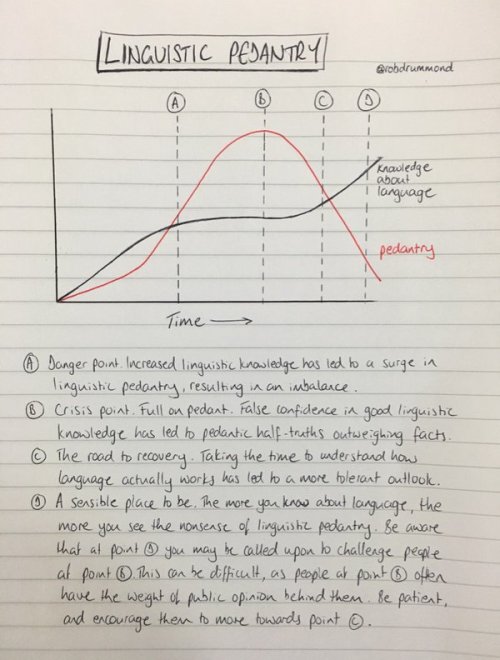 LINGUISTIC PEDANTRY
@robdrummond
A B C D
knowledge
about
language
pedantry
Time
A Danger point. Increased linguistic knowledge has led to a surge in
linguistic pedantry, resulting in an imbalance.
B Crisis point. Full on pedant. False confidence in good linguistic
knowledge has led to pedantic half-truths outweighing facts.
C The road to recovery. Taking the time to understand how
language actually works has led to a more tolerant outlook.
D A sensible place to be. The more you know about language, the
more you see the nonsense of linguistic pedantry. Be aware
that at point D you may be called upon to challenge people
at point B. This can be difficult, as people at point B often
have the weight of public opinion behind them. Be patient,
and encourage them to move towards point C.